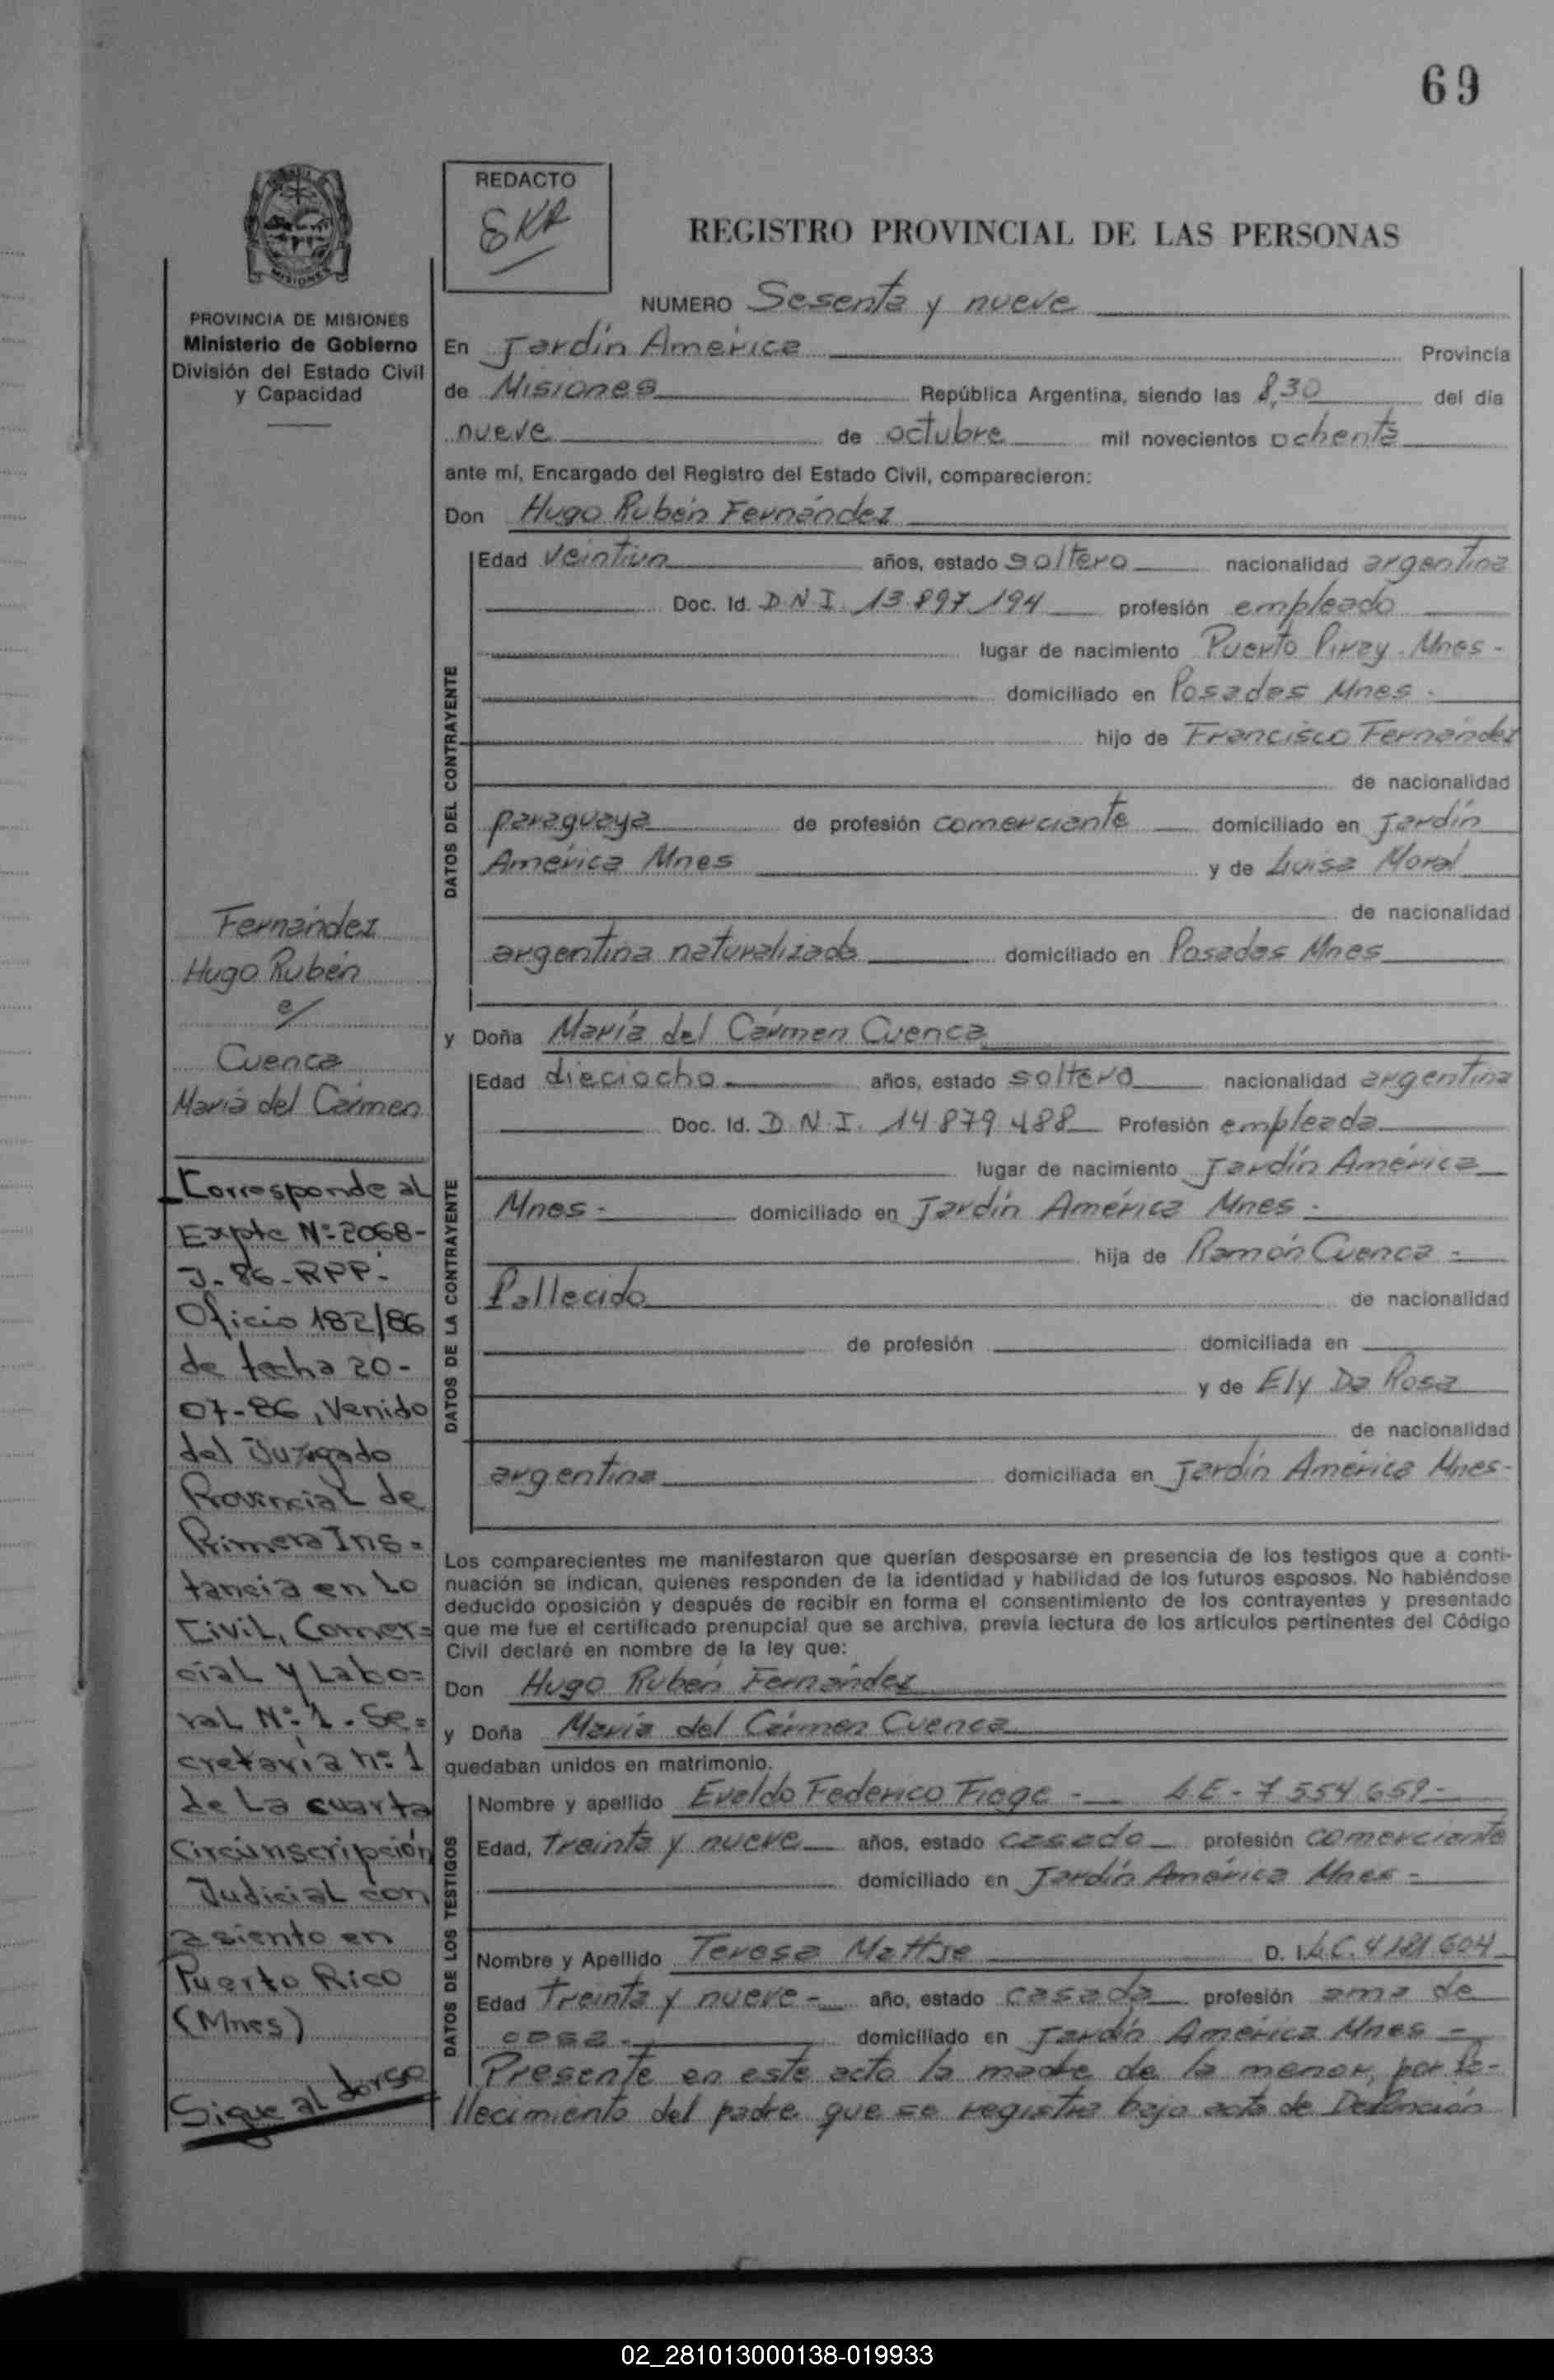 69
REDACTO
SKR
REGISTRO PROVINCIAL DE LAS PERSONAS
MISIONES
PROVINCIA DE MISIONES
Ministerio de Gobierno
División del Estado Civil
y Capacidad
NUMERO Sesenta y nueve
En Jardín América Provincia
de Misiones República Argentina, siendo las 8,30 del día
nueve de octubre mil novecientos ochenta
ante mí, Encargado del Registro del Estado Civil, comparecieron:
Don Hugo Rubén Fernández
DATOS DEL CONTRAYENTE
Edad veintiun años, estado soltero nacionalidad argentina
Doc. Id. D.N.I. 13.897.194 profesión empleado
lugar de nacimiento Puerto Piray. Mnes -
domiciliado en Posadas Mnes.
hijo de Francisco Fernández
de nacionalidad
paraguaya de profesión comerciante domiciliado en Jardín
América Mnes y de Luisa Moral
de nacionalidad
argentina naturalizada domiciliado en Posadas Mnes
Fernández
Hugo Rubén
c/
Cuenca
María del Cármen
y Doña María del Cármen Cuenca
DATOS DE LA CONTRAYENTE
Edad dieciocho años, estado soltera nacionalidad argentina
Doc. Id. D.N.I. 14.879.488 Profesión empleada
lugar de nacimiento Jardín América
Mnes - domiciliado en Jardín América Mnes.
hija de Ramón Cuenca -
Fallecido de nacionalidad
de profesión domiciliada en
y de Ely Da Rosa
de nacionalidad
argentina domiciliada en Jardín América Mnes-
Corresponde al
Expte Nº 2068-
J-86-RPP.
Oficio 182/86
de fecha 20-
07-86, venido
del Juzgado
Provincial de
Primera Ins=
tancia en Lo
Civil, Comer=
cial y Labo=
ral Nº 1. Se=
cretaría nº 1
de La cuarta
Circunscripción
Judicial con
asiento en
Puerto Rico
(Mnes)
Sigue al dorso
Los comparecientes me manifestaron que querían desposarse en presencia de los testigos que a conti-
nuación se indican, quienes responden de la identidad y habilidad de los futuros esposos. No habiéndose
deducido oposición y después de recibir en forma el consentimiento de los contrayentes y presentado
que me fue el certificado prenupcial que se archiva, previa lectura de los artículos pertinentes del Código
Civil declaré en nombre de la ley que:
Don Hugo Rubén Fernández
y Doña María del Cármen Cuenca
quedaban unidos en matrimonio.
DATOS DE LOS TESTIGOS
Nombre y apellido Evaldo Federico Fiege - L.E - 7 554 659 -
Edad, treinta y nueve años, estado casado profesión comerciante
domiciliado en Jardín América Mnes -
Nombre y Apellido Teresa Mattje D. I. L.C. 4 181 604
Edad treinta y nueve - año, estado casada profesión ama de
casa - domiciliado en Jardín América Mnes -
Presente en este acto la madre de la menor, por fa-
llecimiento del padre que se registra bajo acta de Defunción
02_281013000138-019933